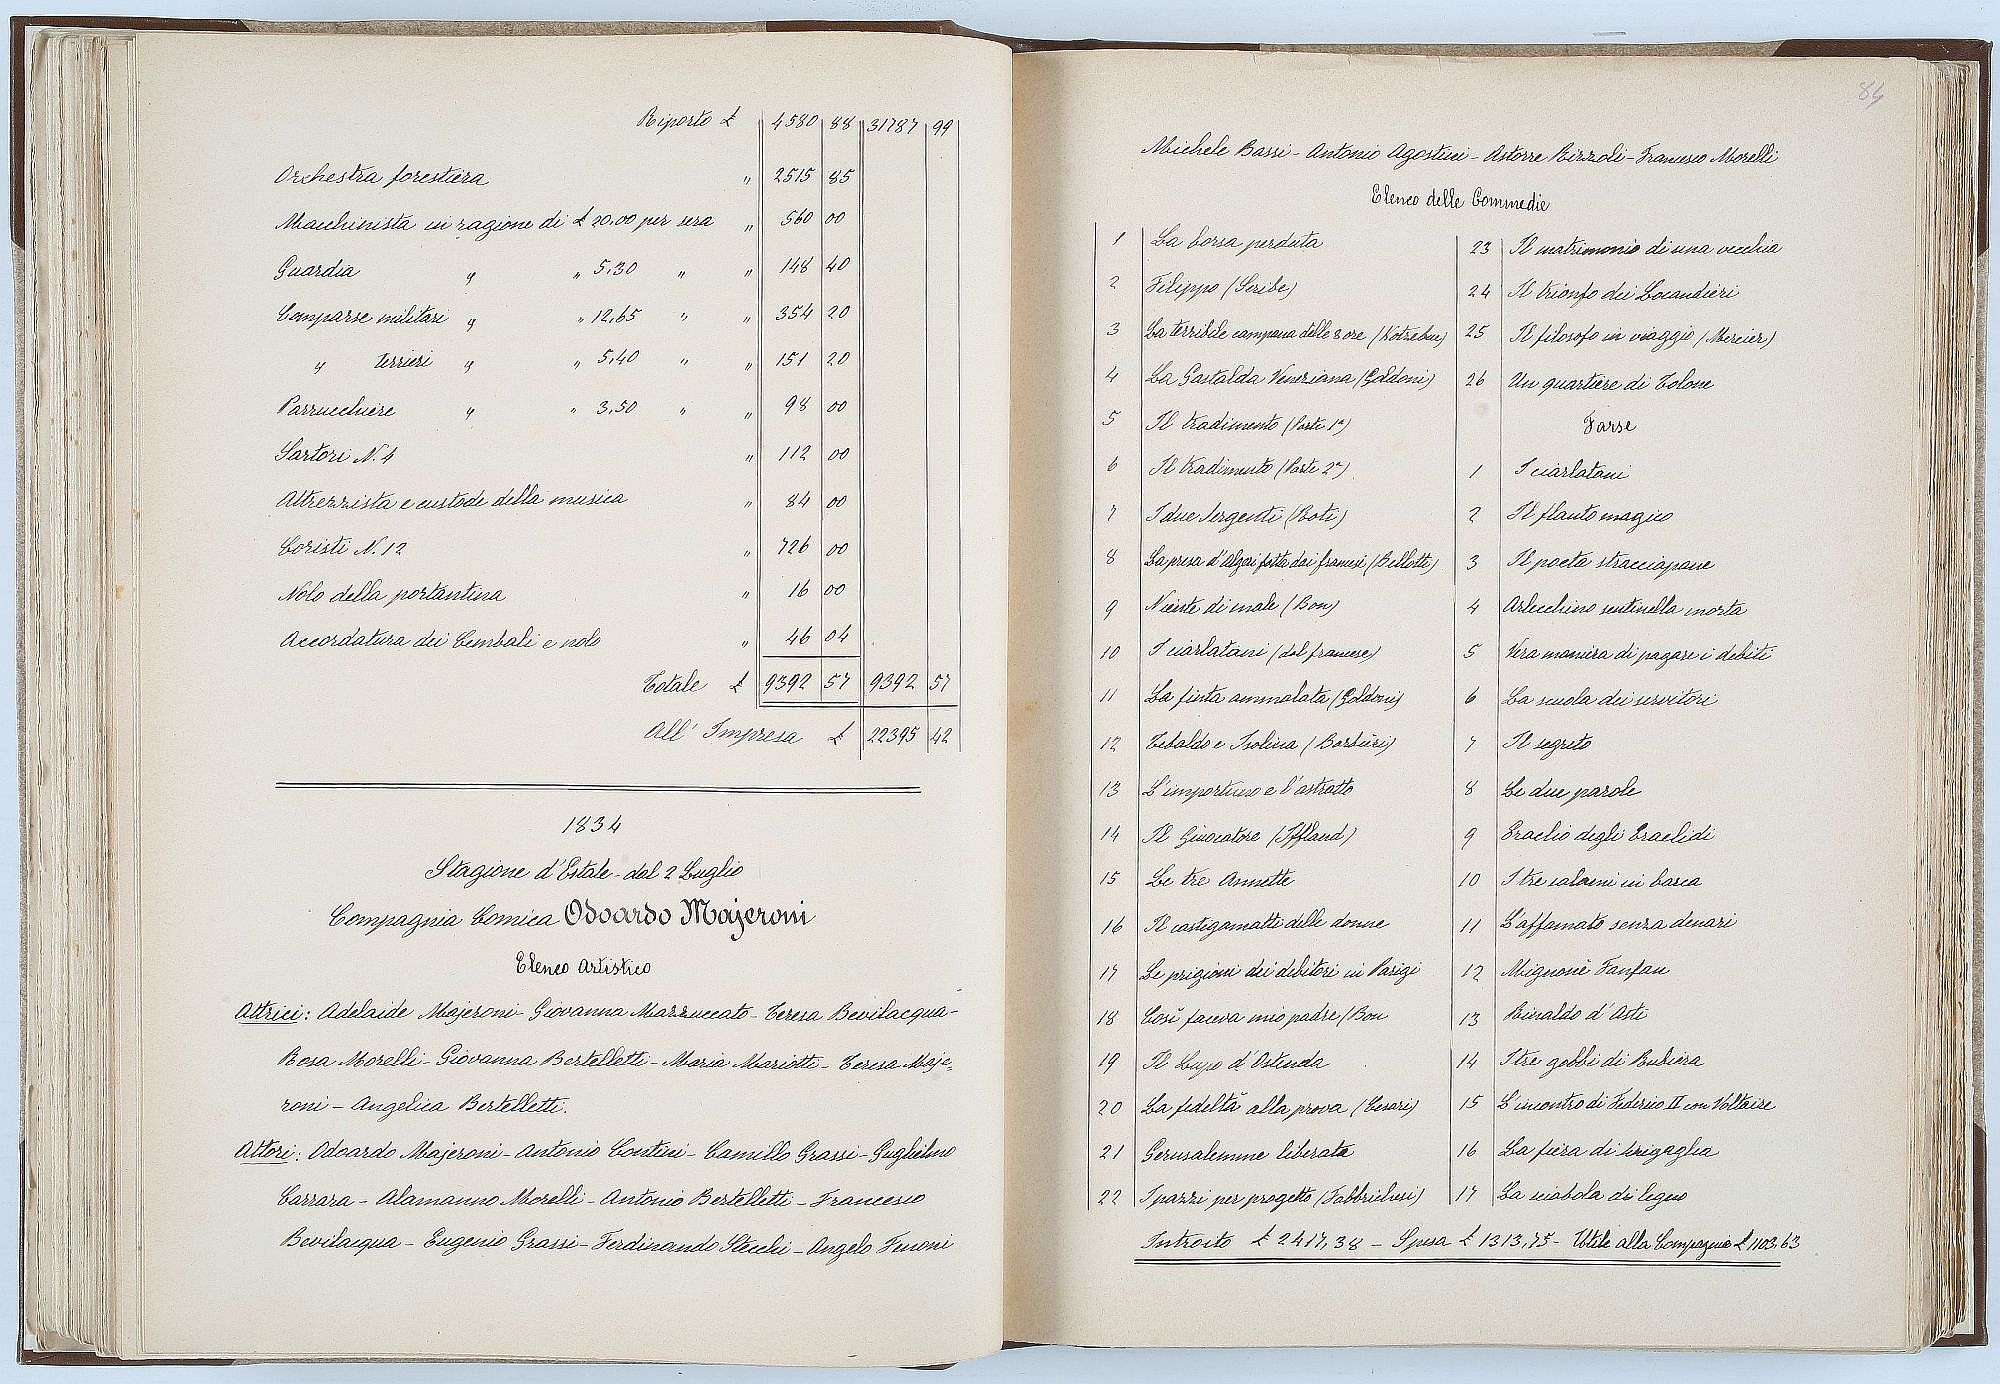 Riporto £ 4580 88 31787 99
Orchestra forestiera " 2515 85
Macchinista in ragione di £ 20.00 per sera " 560 00
Guardia " " 5.30 " " 148 40
Comparse militari " " 12,65 " " 354 20
" terrieri " " 5,40 " " 151 20
Parrucchiere " " 3,50 " " 98 00
Sartori N. 4 " 112 00
Attrezzista e custode della musica " 84 00
Coristi N. 12 " 726 00
Nolo della portantina " 16 00
Accordatura dei Cembali e nolo " 46 04
Totale £ 9392 57 9392 57
All' Impresa £ 22395 42
1834
Stagione d'Estate - dal 2 Luglio
Compagnia Comica Odoardo Majeroni
Elenco Artistico
Attrici: Adelaide Majeroni - Giovanna Mazzuccato - Teresa Bevilacqua -
Rosa Morelli - Giovanna Bertelletti - Maria Mariotti - Teresa Maje-
roni - Angelica Bertelletti.
Attori: Odoardo Majeroni - Antonio Contini - Camillo Grassi - Guglielmo
Carrara - Alamanno Morelli - Antonio Bertelletti - Francesco
Bevilacqua - Eugenio Grassi - Ferdinando Stecchi - Angelo Fenoni
84
Michele Bassi - Antonio Agostini - Astorre Rizzoli - Francesco Morelli
Elenco delle Commedie
1 La borsa perduta
2 Filippo (Scribe)
3 La terribile campana delle 8 ore (Kotzebue)
4 La Gastalda Veneziana (Goldoni)
5 Il tradimento (Parte 1ª)
6 Il tradimento (Parte 2ª)
7 I due Sergenti (Roti)
8 La presa d'Algeri fatta dai francesi (Bellotti)
9 Niente di male (Bon)
10 I ciarlatani (dal francese)
11 La finta ammalata (Goldoni)
12 Tebaldo e Isolina (Barbieri)
13 L'importuno e l'astratto
14 Il Giuocatore (Iffland)
15 Le tre Annette
16 Il castigamatti delle donne
17 Le prigioni dei debitori in Parigi
18 Così faceva mio padre (Bon
19 Il Lupo d'Ostenda
20 La fedeltà alla prova (Cesari)
21 Gerusalemme liberata
22 I pazzi per progetto (Fabbrichesi)
23 Il matrimonio di una vecchia
24 Il trionfo dei Locandieri
25 Il filosofo in viaggio (Mercier)
26 Un quartiere di Tolone
Farse
1 I ciarlatani
2 Il flauto magico
3 Il poeta stracciapane
4 Arlecchino sentinella morta
5 Vera maniera di pagare i debiti
6 La scuola dei servitori
7 Il segreto
8 Le due parole
9 Eraclio degli Eraclidi
10 I tre salami in barca
11 L'affamato senza denari
12 Mignonè Fanfan
13 Rinaldo d'Asti
14 I tre gobbi di Rubiera
15 L'incontro di Federico II con Voltaire
16 La fiera di
17 La sciabola di legno
Introito £ 2417,38 - Spesa £ 1313,75 - Utile alla Compagnia £ 1103.63